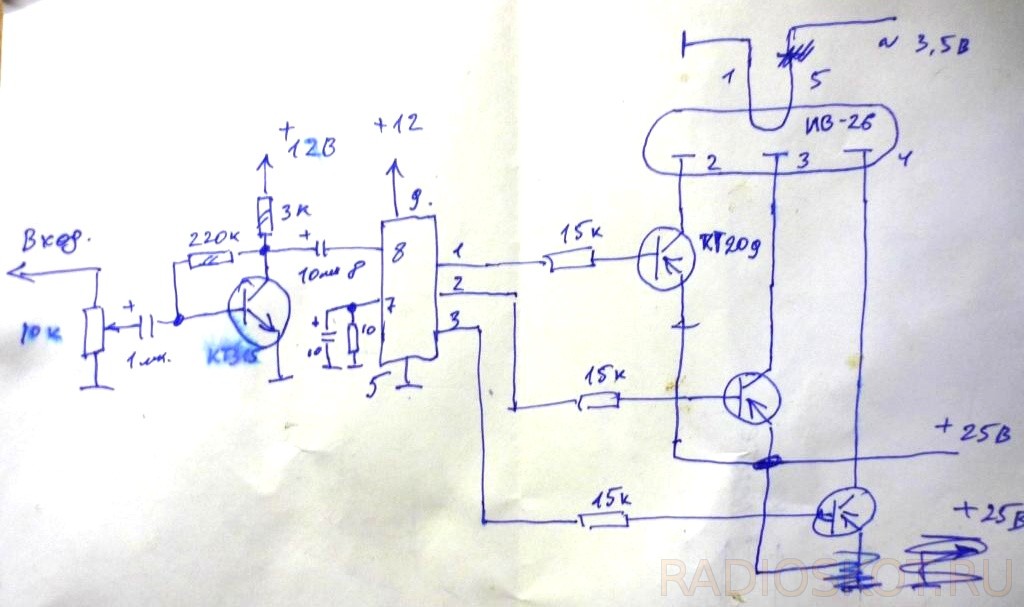 ~ 3,5В
1
5
ИВ-26
2
3
4
+
12В
+12
9.
3к
Вход.
220к
+
8
1
15к
КТ209
10мк
7
2
+
10к
1мк.
КТ315
+
10
10
3
5
15к
+25В
15к
+25В
RADIOSKOT.RU